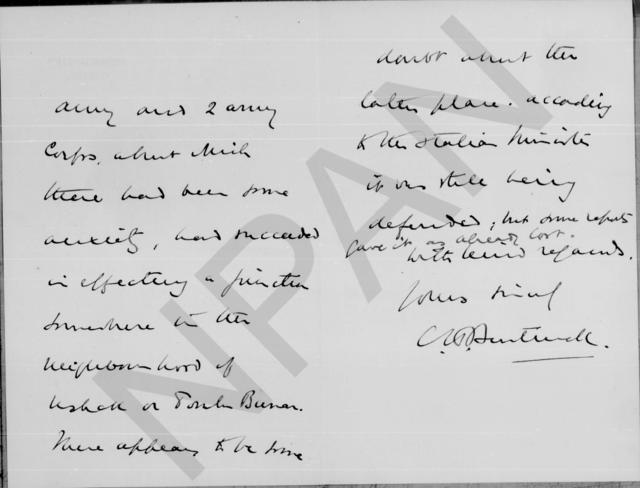 army and 2 army
Corps, about which
there had been some
anxiety, had succeeded
in effecting a junction
somewhere in the
neighbourhood of
Uskub or
There appears to be some
doubt about the
latter place. According
to the Italian Minister
it was still being
defended; but some reports
gave it as already lost.
With kind regards.
Yours
NPAN